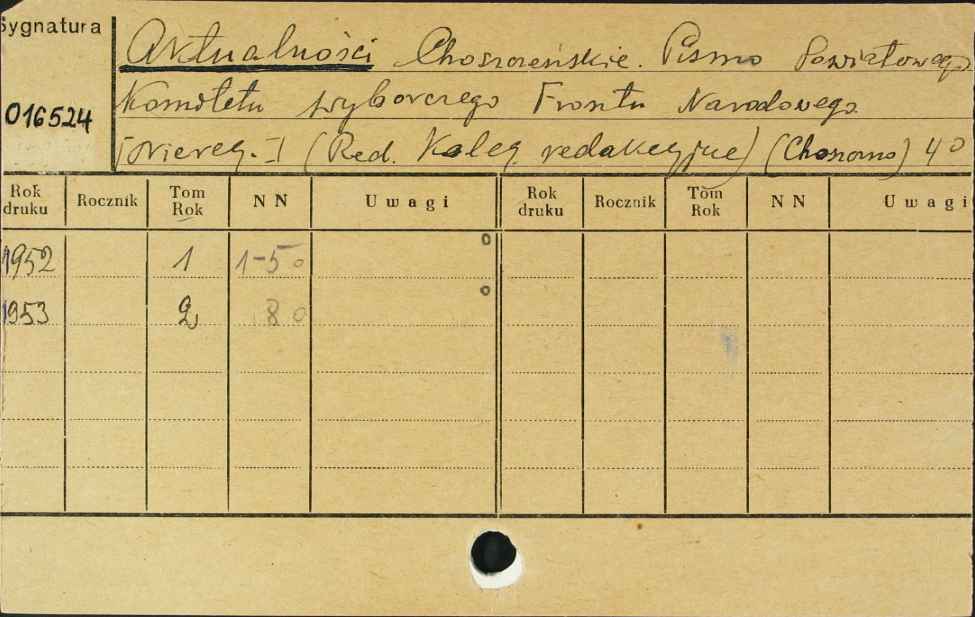 Sygnatura
016524
Aktualności Choszczeńskie. Pismo Powiatowego
Komitetu wyborczego Frontu Narodowego
[niereg.] (Red. Koleg redakcyjne) (Choszczno) 4 0
Rok druku Rocznik Tom Rok NN Uwagi Rok druku Rocznik Tom Rok NN Uwagi
1952 1 1-5 0
1953 2 8 0